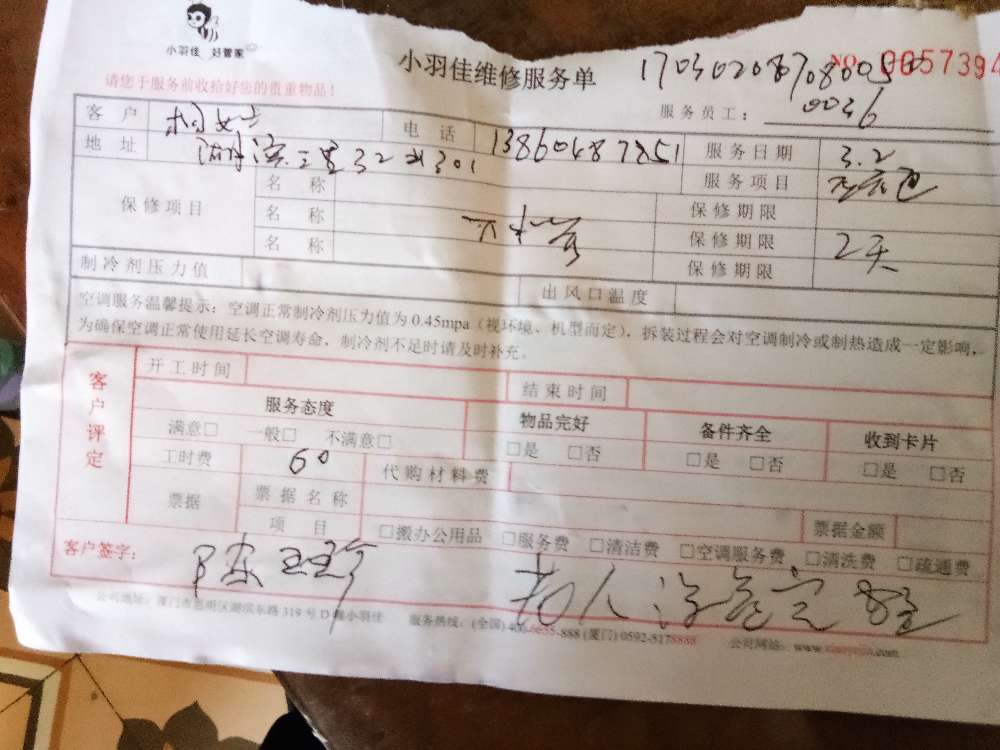 小羽佳 好管家
小羽佳维修服务单
No 0057394
请您于服务前收拾好您的贵重物品！
服务员工： 0036
客户 电话 13860487851 服务日期 3.2
地址 32 301 服务项目
保修项目 名称 保修期限
名称 保修期限 2天
名称 保修期限
制冷剂压力值 出风口温度
空调服务温馨提示：空调正常制冷剂压力值为0.45mpa（视环境、机型而定），拆装过程会对空调制冷或制热造成一定影响，
为确保空调正常使用延长空调寿命，制冷剂不足时请及时补充。
客户评定 开工时间 结束时间
服务态度 物品完好 备件齐全 收到卡片
满意□ 一般□ 不满意□ □是 □否 □是 □否 □是 □否
工时费 60 代购材料费
票据 票据名称 票据金额
项目 □搬办公用品 □服务费 □清洁费 □空调服务费 □清洗费 □疏通费
客户签字：
公司地址：厦门市思明区湖滨东路319号D 小羽佳 服务热线：(全国)400-6655-888 (厦门) 0592-5178888 公司网站：